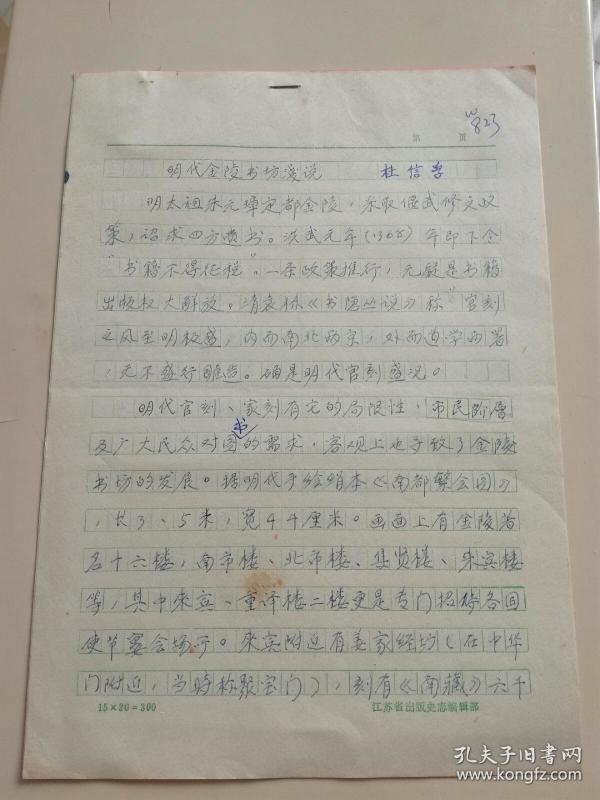 第 页
823
明代金陵书坊漫说 杜信孚
明太祖朱元璋定都金陵，采取偃武修文政
策，诏求四方遗书。洪武元年(1368)年即下令
“书籍不得征税”。一条政策推行，无疑是书籍
出版权大解放。清袁栋《书隐丛说》称“官刻
之风至明极盛，内而南北两京，外而道学两署
，无不盛行雕造。确是明代官刻盛况。
明代官刻、家刻有它的局限性，市民阶层
及广大民众对图书的需求，客观上也导致了金陵
书坊的发展。据明代手绘绢本《南都繁会图》
，长3、5米，宽44厘米。画面上有金陵著
名十六楼，南市楼、北市楼、集贤楼、来宾楼
等，其中来宾、重译楼二楼更是专门招待各国
使节宴会场所。来宾附近有姜家经坊（在中华
门附近，当时称聚宝门），刻有《南藏》六千
15×20=300
江苏省出版史志编辑部
孔夫子旧书网
www.kongfz.com